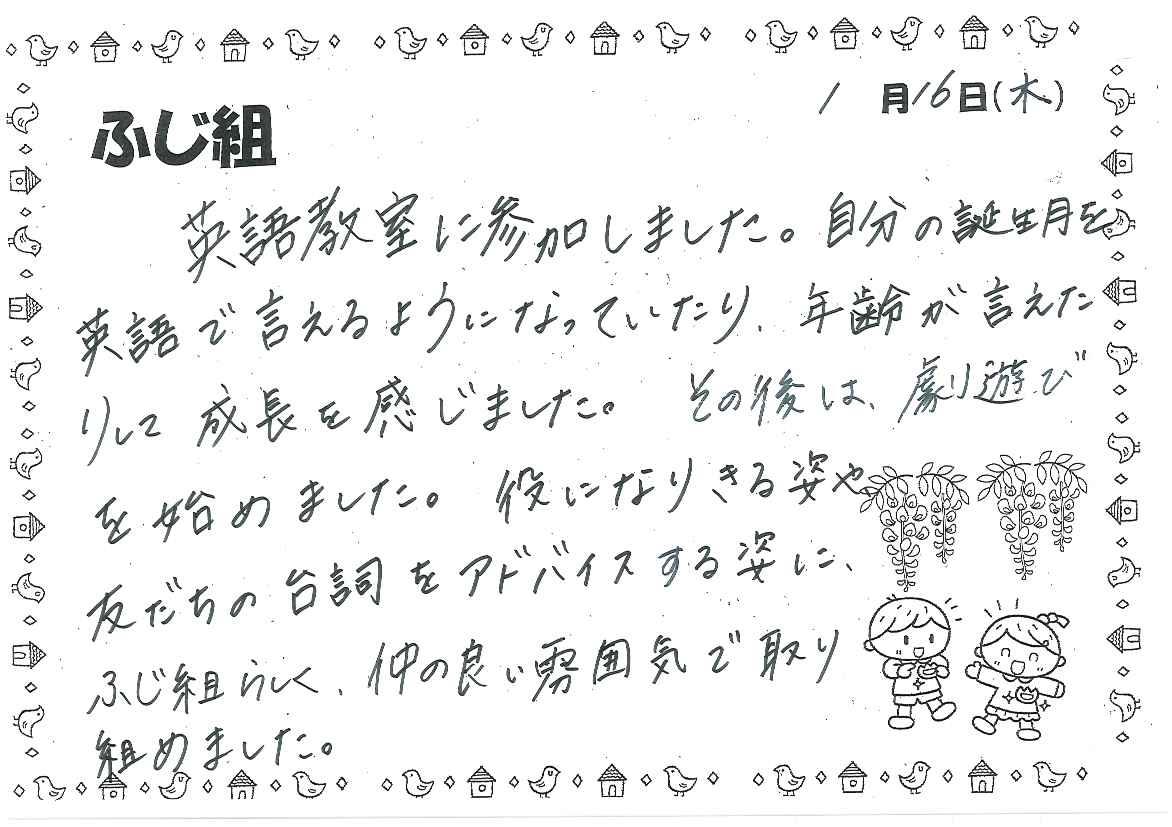 1月16日(木)
ふじ組
英語教室に参加しました。自分の誕生月を
英語で言えるようになっていたり、年齢が言えた
りして成長を感じました。その後は、劇遊び
を始めました。役になりきる姿や
友だちの台詞をアドバイスする姿に、
ふじ組らしく、仲の良い雰囲気で取り
組めました。